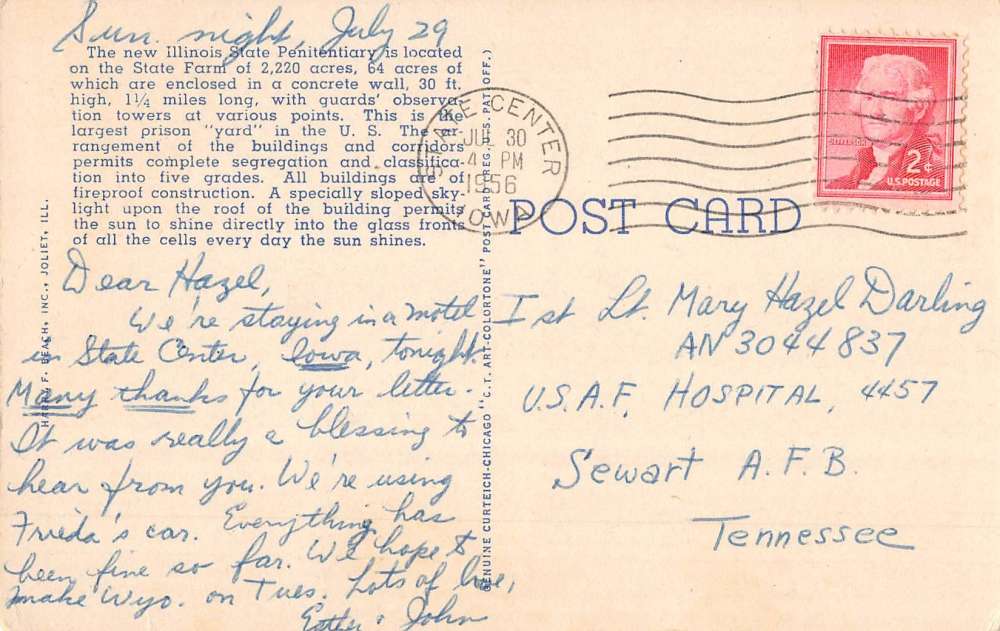 Sun. night, July 29
The new Illinois State Penitentiary is located
on the State Farm of 2,220 acres, 64 acres of
which are enclosed in a concrete wall, 30 ft.
high, 1¼ miles long, with guards' observa-
tion towers at various points. This is the
largest prison "yard" in the U. S. The ar-
rangement of the buildings and corridors
permits complete segregation and classifica-
tion into five grades. All buildings are of
fireproof construction. A specially sloped sky-
light upon the roof of the building permits
the sun to shine directly into the glass fronts
of all the cells every day the sun shines.
Dear Hazel,
We're staying in a motel
in State Center, Iowa, tonight.
Many thanks for your letter.
It was really a blessing to
hear from you. We're using
Frieda's car. Everything has
been fine so far. We hope to
make Wyo. on Tues. Lots of love,
Esther & John
HARRY F. BEACH, INC., JOLIET, ILL.
GENUINE CURTEICH-CHICAGO "C.T. ART-COLORTONE" POST CARD (REG. U.S. PAT. OFF.)
STATE CENTER
JUL 30
4 PM
1956
IOWA
JEFFERSON
2¢
U.S. POSTAGE
POST CARD
1st Lt. Mary Hazel Darling
AN 3044837
U.S.A.F. HOSPITAL, 4457
Sewart A.F.B.
Tennessee